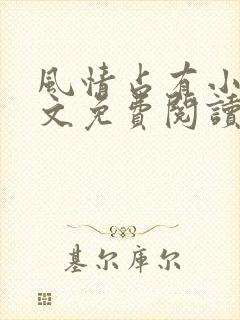 風情占有小
文免費閱讀
基尔库尔